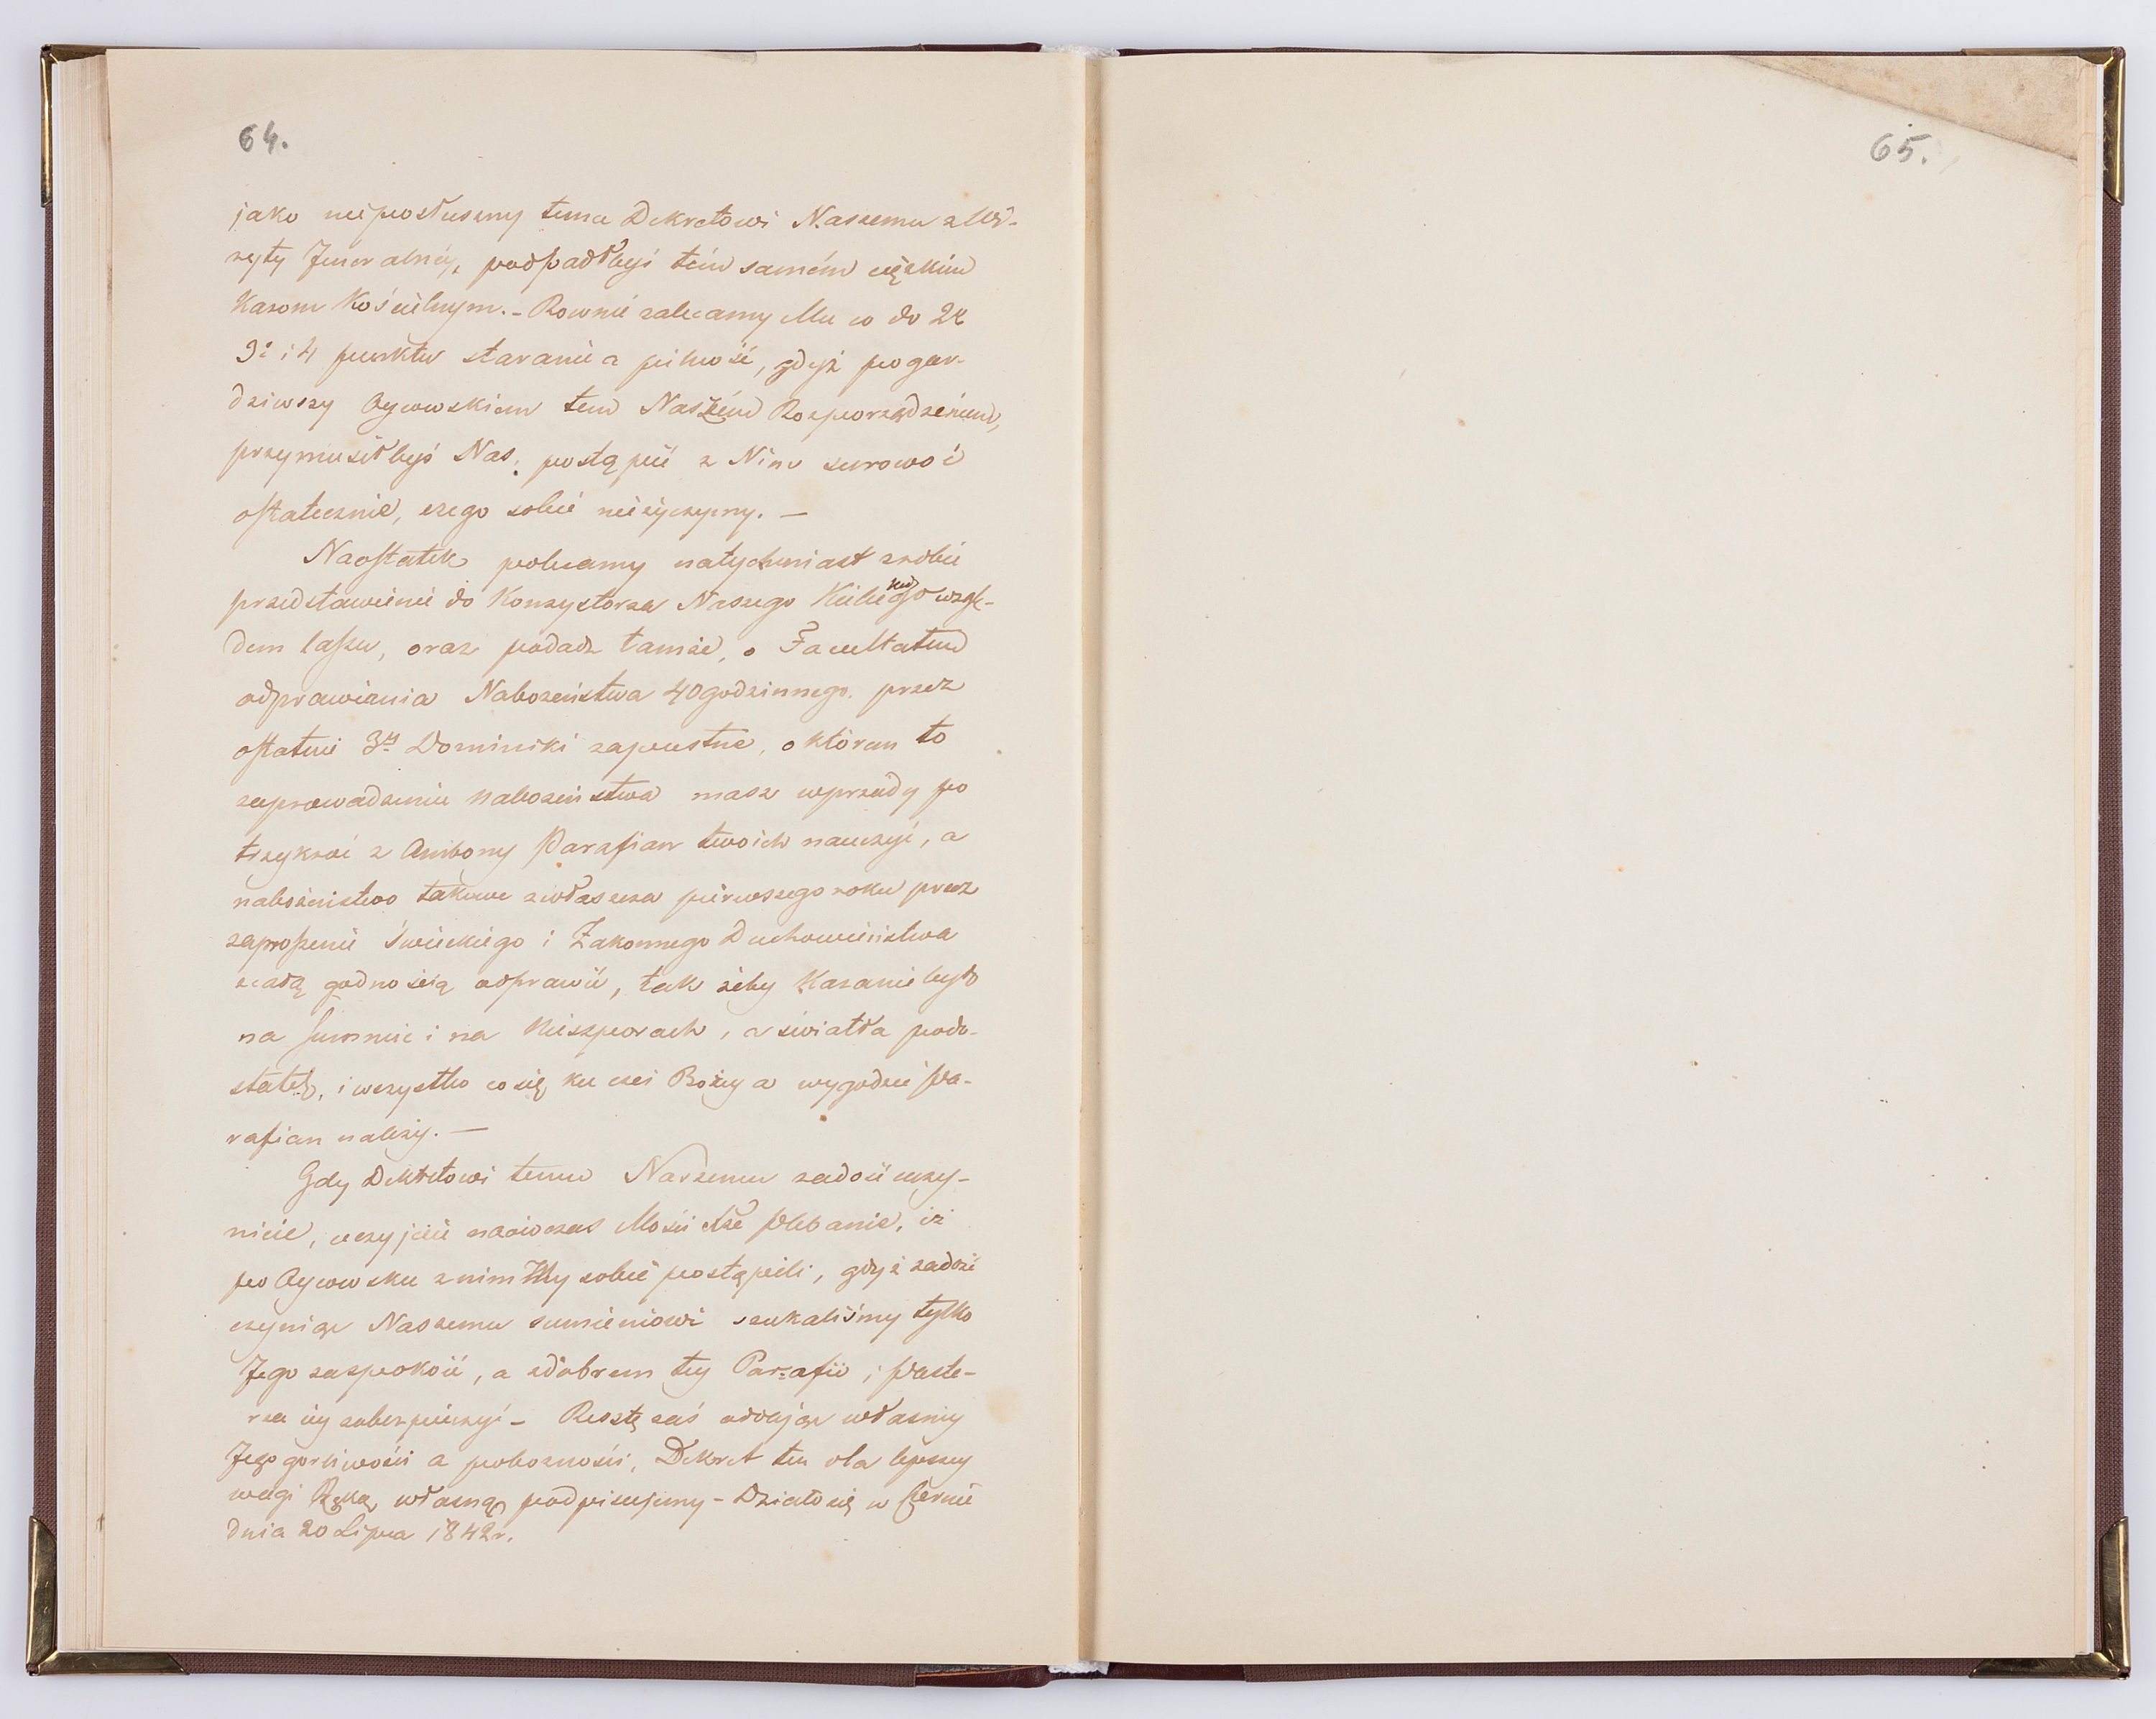 64.
jako nieposłuszny temu Dekretowi Naszemu z Wi-
zyty Jeneralnéy, podpadłbyś tém samém cięzkim
Karom Kościelnym. - Rownie zalecamy Mu co do 2º
3º i 4 punktu staranie a pilność, gdyż pogar-
dziwszy Oycowskiem tem Naszém Rozporządzeniem,
przymusiłbyś Nas, postąpić z Nim surowo i
ostatecznie, czego sobie nieżyczymy. —
Naostatek polecamy natychmiast zrobić
przedstawienie do Konzystorza Naszego Kielcgo wzglę-
dem lassu, oraz podadz tamże, o Facultatem
odprawiania Nabozeństwa 40godzinnego przez
ostatnie 3y Dominiki zapustne, o którem to
zaprowadzeniu nabozeństwa masz wprzódy po
trzykroć z Ambony Parafian twoich nauczyć, a
nabożeństwo takowe zwłaszcza pierwszego roku przez
zaproszenie Świeckiego i Zakonnego Duchowieństwa
z całą godnością odprawić, tak żeby Kazanie było
na summie i na Nieszporach, a światła podo-
statek, i wszystko co się ku czci Bożey a wygodzie Pa-
rafian należy. —
Gdy Dekretowi temu Naszemu zadość uczy-
nicie, uczyjcie naówczas Mości Xże Plebanie, iż
po Oycowsku z nim My sobie postąpili, gdyż zadość
czyniąc Naszemu sumieniowi szukaliśmy tylko
Jego zaspokoić, a z dobrem tey Parafii i Paste-
rza iey zabezpieczyć - Resztę zaś oddając własney
Jego gorliwości a pobozności, Dekret ten dla lepszey
wagi Ręką własną podpisujemy - Działo się w Czernie
dnia 20 Lipca 1842 r.
65.